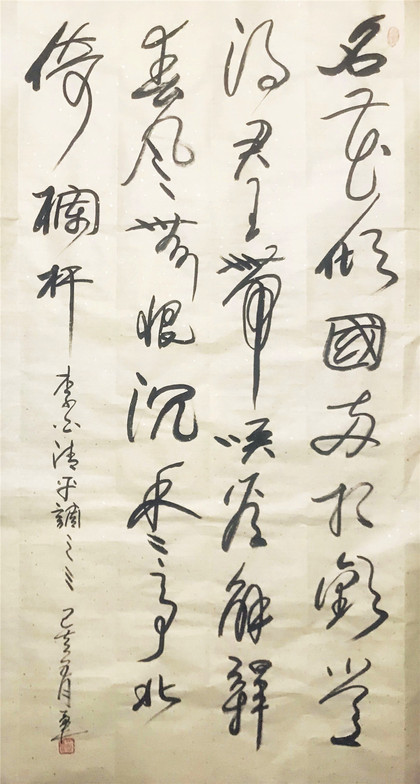 名花傾國兩相歡常
得君王帶咲看解釋
春風無限恨沉香亭北
倚欄杆 李白清平調之三 己亥五月